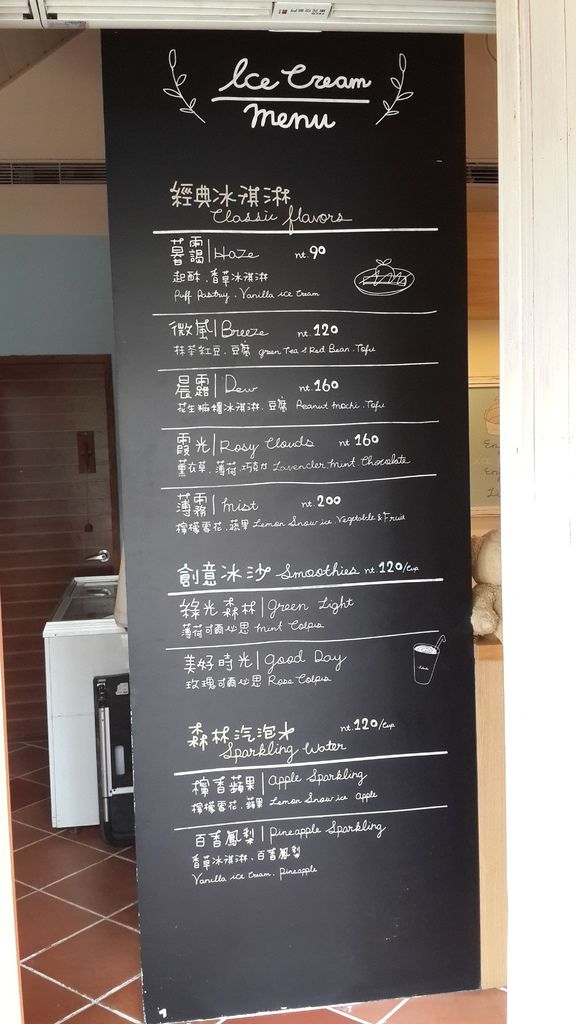 Ice Cream
menu
經典冰淇淋
Classic flavors
暮靄 | Haze nt.90
起酥.香草冰淇淋
Puff Pastry. Vanilla ice cream
微風 | Breeze nt.120
抹茶紅豆.豆腐 green Tea & Red Bean. Tofu
晨露 | Dew nt.160
花生麻糬冰淇淋.豆腐 Peanut mochi. Tofu
霞光 | Rosy Clouds nt 160
薰衣草.薄荷.巧克力 Lavender. mint. Chocolate
薄霧 | mist nt.200
檸檬雪花.蔬果 Lemon Snow ice. Vegetable & Fruit
創意冰沙 Smoothies nt.120/cup
綠光森林 | green Light
薄荷可爾必思 mint Calpis
美好時光 | good Day
玫瑰可爾必思 Rose Calpis
森林汽泡水 nt.120/cup
Sparkling Water
檸香蘋果 | apple Sparkling
檸檬雪花.蘋果 Lemon Snow ice apple
百香鳳梨 | pineapple Sparkling
香草冰淇淋.百香鳳梨
Vanilla ice cream. pineapple